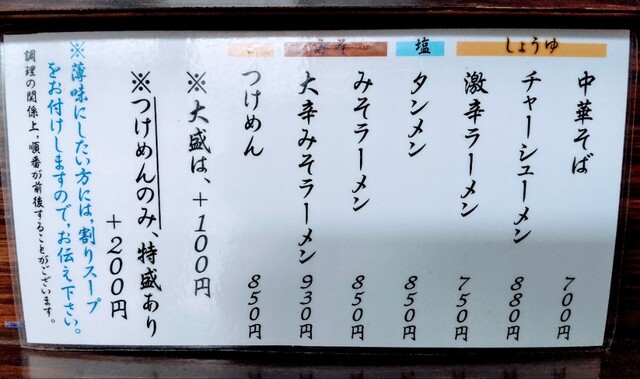 しょうゆ
中華そば 700円
チャーシューメン 880円
激辛ラーメン 750円
塩
タンメン 850円
みそ
みそラーメン 850円
大辛みそラーメン 930円
つけめん 850円
※大盛は、+100円
※つけめんのみ、特盛あり
+200円
※薄味にしたい方には、割りスープ
をお付けしますので、お伝え下さい。
調理の関係上、順番が前後することがございます。